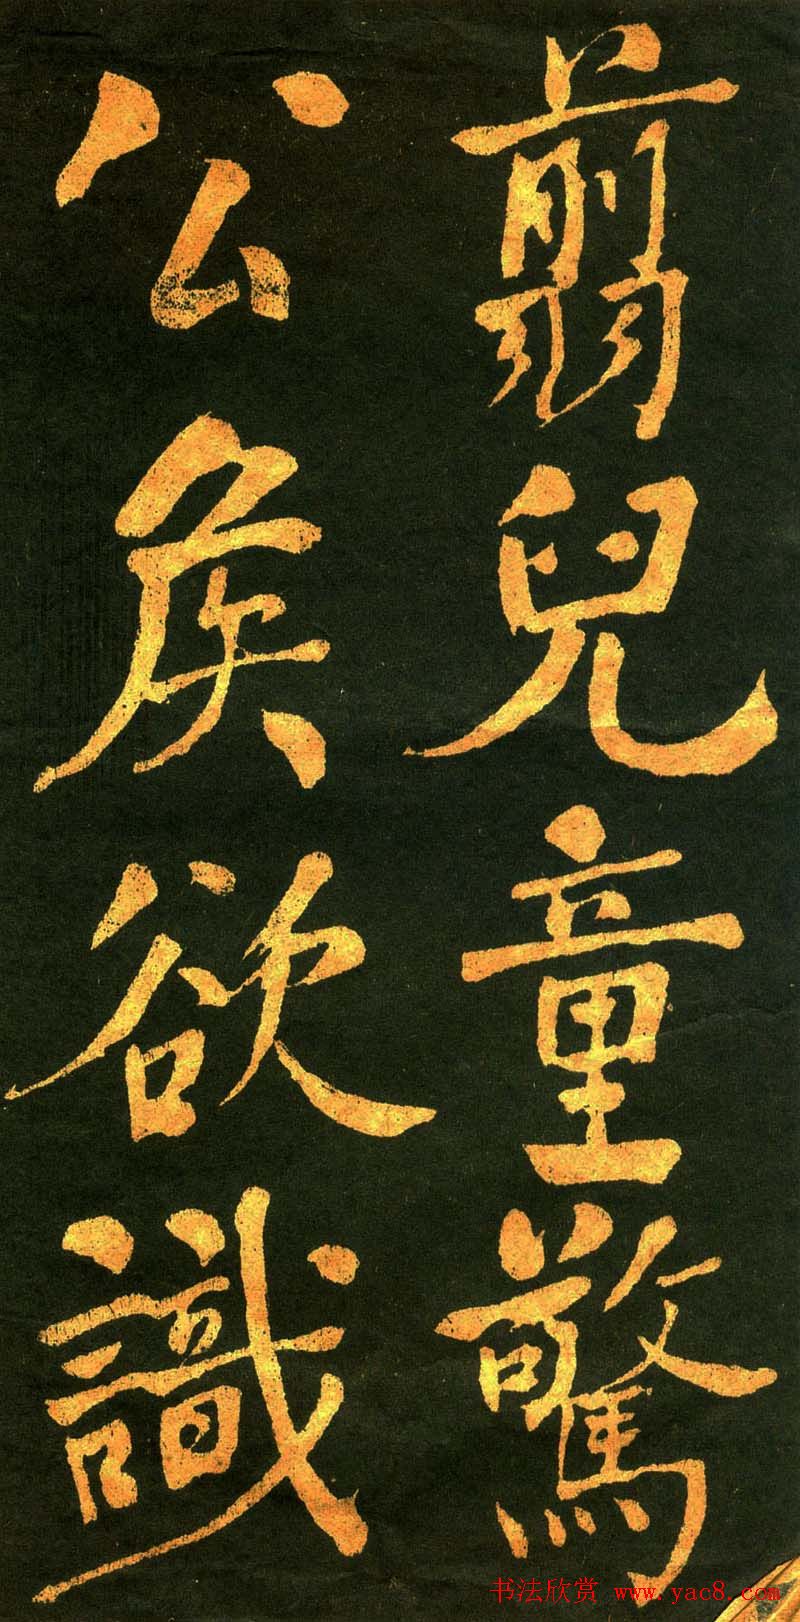 翦兒童驚
公侯欲識
书法欣赏 www.yac8.com